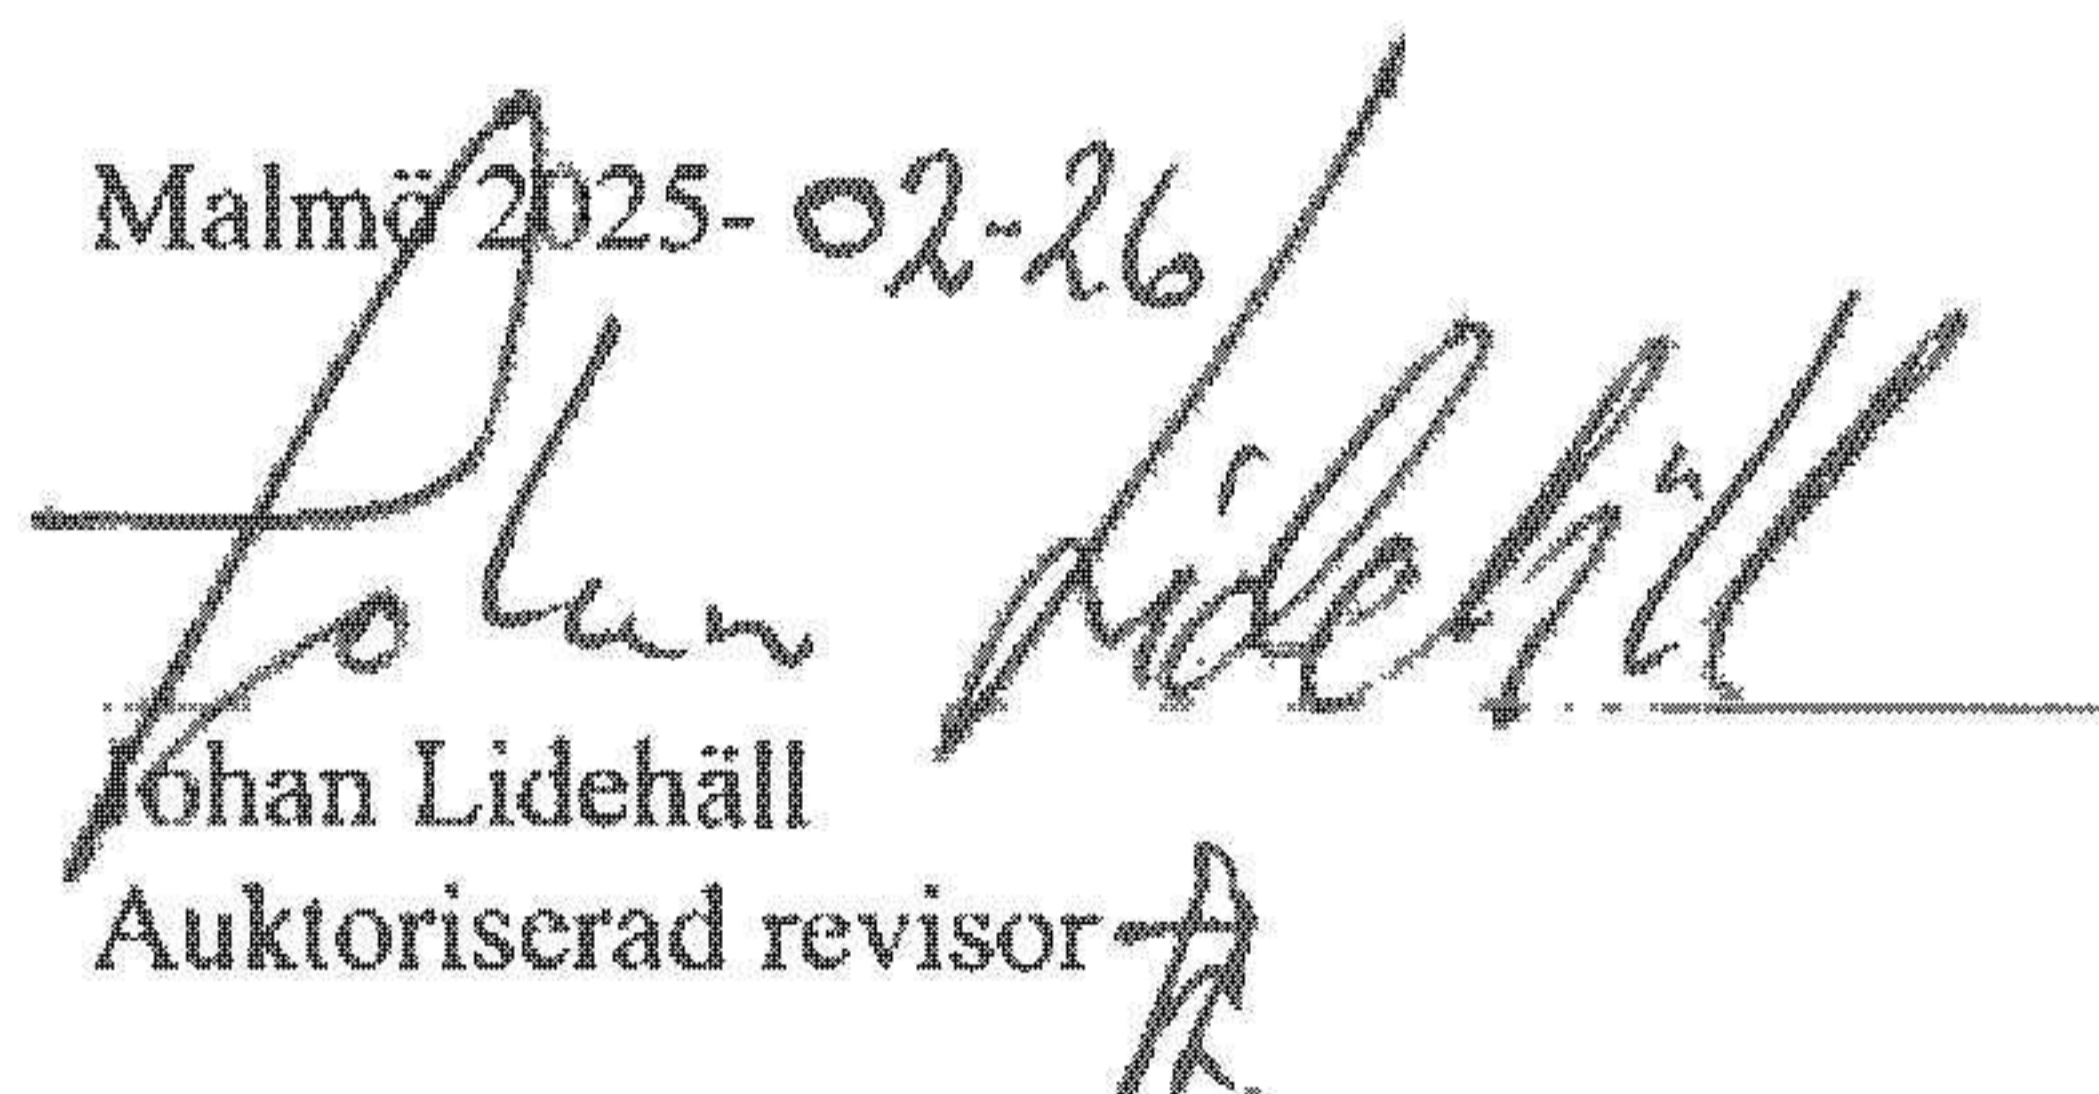 Malmö 2025- 02-26
Johan Lidehäll
Johan Lidehäll
Auktoriserad revisor